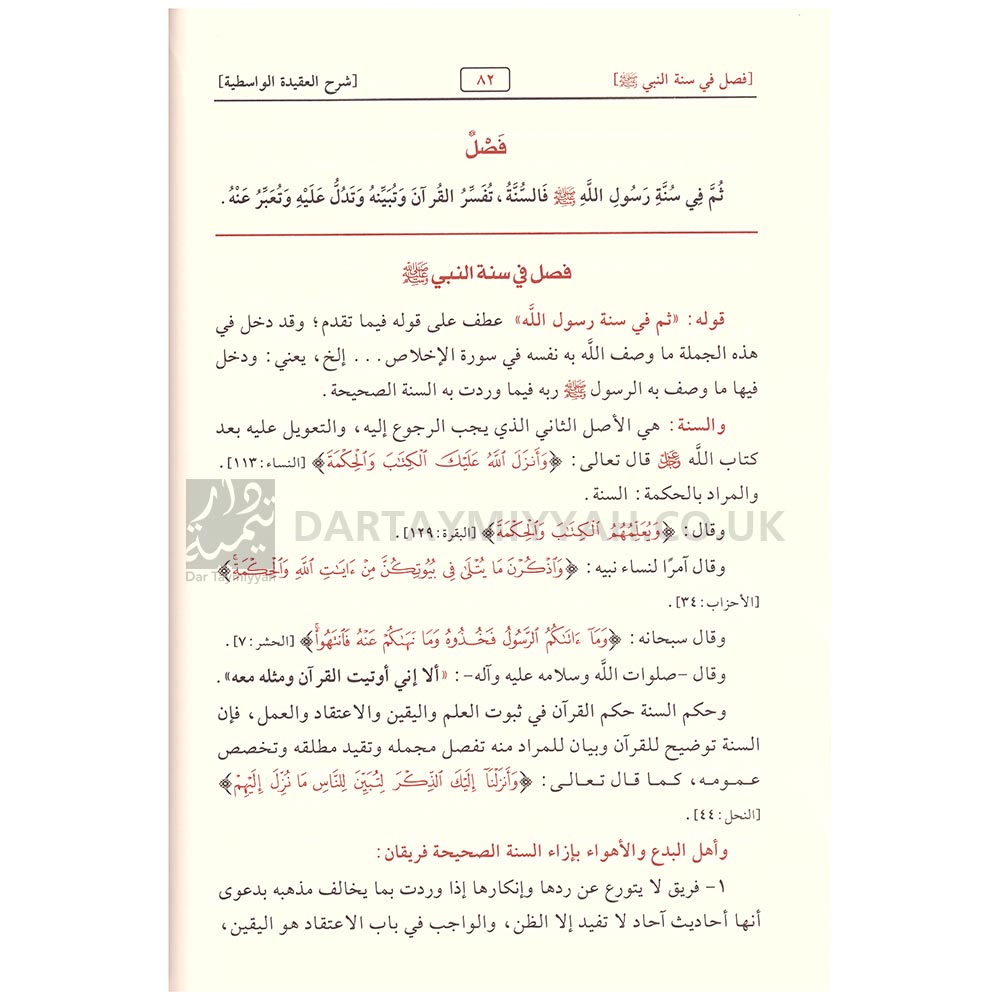 [فصل في سنة النبي ﷺ] ٨٢ [شرح العقيدة الواسطية]
فَصْلٌ
ثُمَّ فِي سُنَّةِ رَسُولِ اللَّهِ ﷺ فَالسُّنَّةُ، تُفَسِّرُ القُرآنَ وَتُبَيِّنُهُ وَتَدُلُّ عَلَيْهِ وَتُعَبِّرُ عَنْهُ.
فصل في سنة النبي ﷺ
قوله: «ثم في سنة رسول اللَّه» عطف على قوله فيما تقدم؛ وقد دخل في
هذه الجملة ما وصف اللَّه به نفسه في سورة الإخلاص... إلخ، يعني: ودخل
فيها ما وصف به الرسول ﷺ ربه فيما وردت به السنة الصحيحة.
والسنة: هي الأصل الثاني الذي يجب الرجوع إليه، والتعويل عليه بعد
كتاب اللَّه عز وجل قال تعالى: ﴿وَأَنزَلَ ٱللَّهُ عَلَيْكَ ٱلْكِتَٰبَ وَٱلْحِكْمَةَ﴾ [النساء: ١١٣].
والمراد بالحكمة: السنة.
وقال: ﴿وَيُعَلِّمُهُمُ ٱلْكِتَٰبَ وَٱلْحِكْمَةَ﴾ [البقرة: ١٢٩].
وقال آمرًا لنساء نبيه: ﴿وَٱذْكُرْنَ مَا يُتْلَىٰ فِى بُيُوتِكُنَّ مِنْ ءَايَٰتِ ٱللَّهِ وَٱلْحِكْمَةِۚ﴾
[الأحزاب: ٣٤].
وقال سبحانه: ﴿وَمَآ ءَاتَىٰكُمُ ٱلرَّسُولُ فَخُذُوهُ وَمَا نَهَىٰكُمْ عَنْهُ فَٱنتَهُوا۟ۚ﴾ [الحشر: ٧].
وقال -صلوات اللَّه وسلامه عليه وآله-: «ألا إني أوتيت القرآن ومثله معه».
وحكم السنة حكم القرآن في ثبوت العلم واليقين والاعتقاد والعمل، فإن
السنة توضيح للقرآن وبيان للمراد منه تفصل مجمله وتقيد مطلقه وتخصص
عمومه، كما قال تعالى: ﴿وَأَنزَلْنَآ إِلَيْكَ ٱلذِّكْرَ لِتُبَيِّنَ لِلنَّاسِ مَا نُزِّلَ إِلَيْهِمْ﴾
[النحل: ٤٤].
وأهل البدع والأهواء بإزاء السنة الصحيحة فريقان:
١- فريق لا يتورع عن ردها وإنكارها إذا وردت بما يخالف مذهبه بدعوى
أنها أحاديث آحاد لا تفيد إلا الظن، والواجب في باب الاعتقاد هو اليقين،
دار تيمية
Dar Taymiyyah
DARTAYMIYYAH.CO.UK